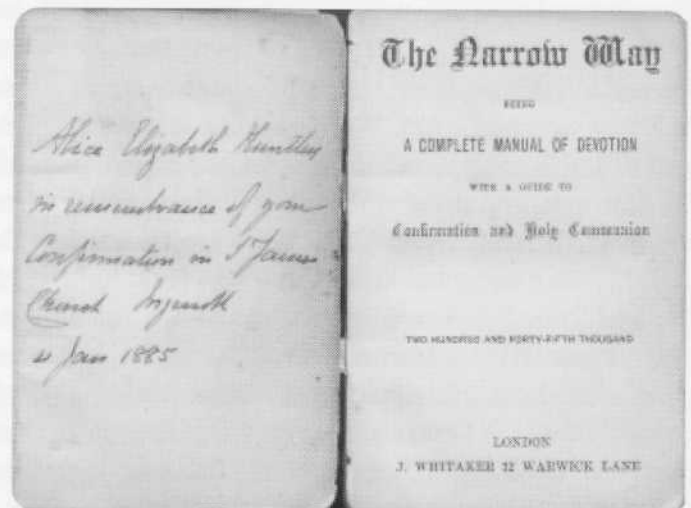 Alice Elizabeth Huntley
in remembrance of your
Confirmation in S James
Church
4 Jan 1885
The Narrow Way
BEING
A COMPLETE MANUAL OF DEVOTION
WITH A GUIDE TO
Confirmation and Holy Communion
TWO HUNDRED AND FORTY-FIFTH THOUSAND
LONDON
J. WHITAKER 12 WARWICK LANE